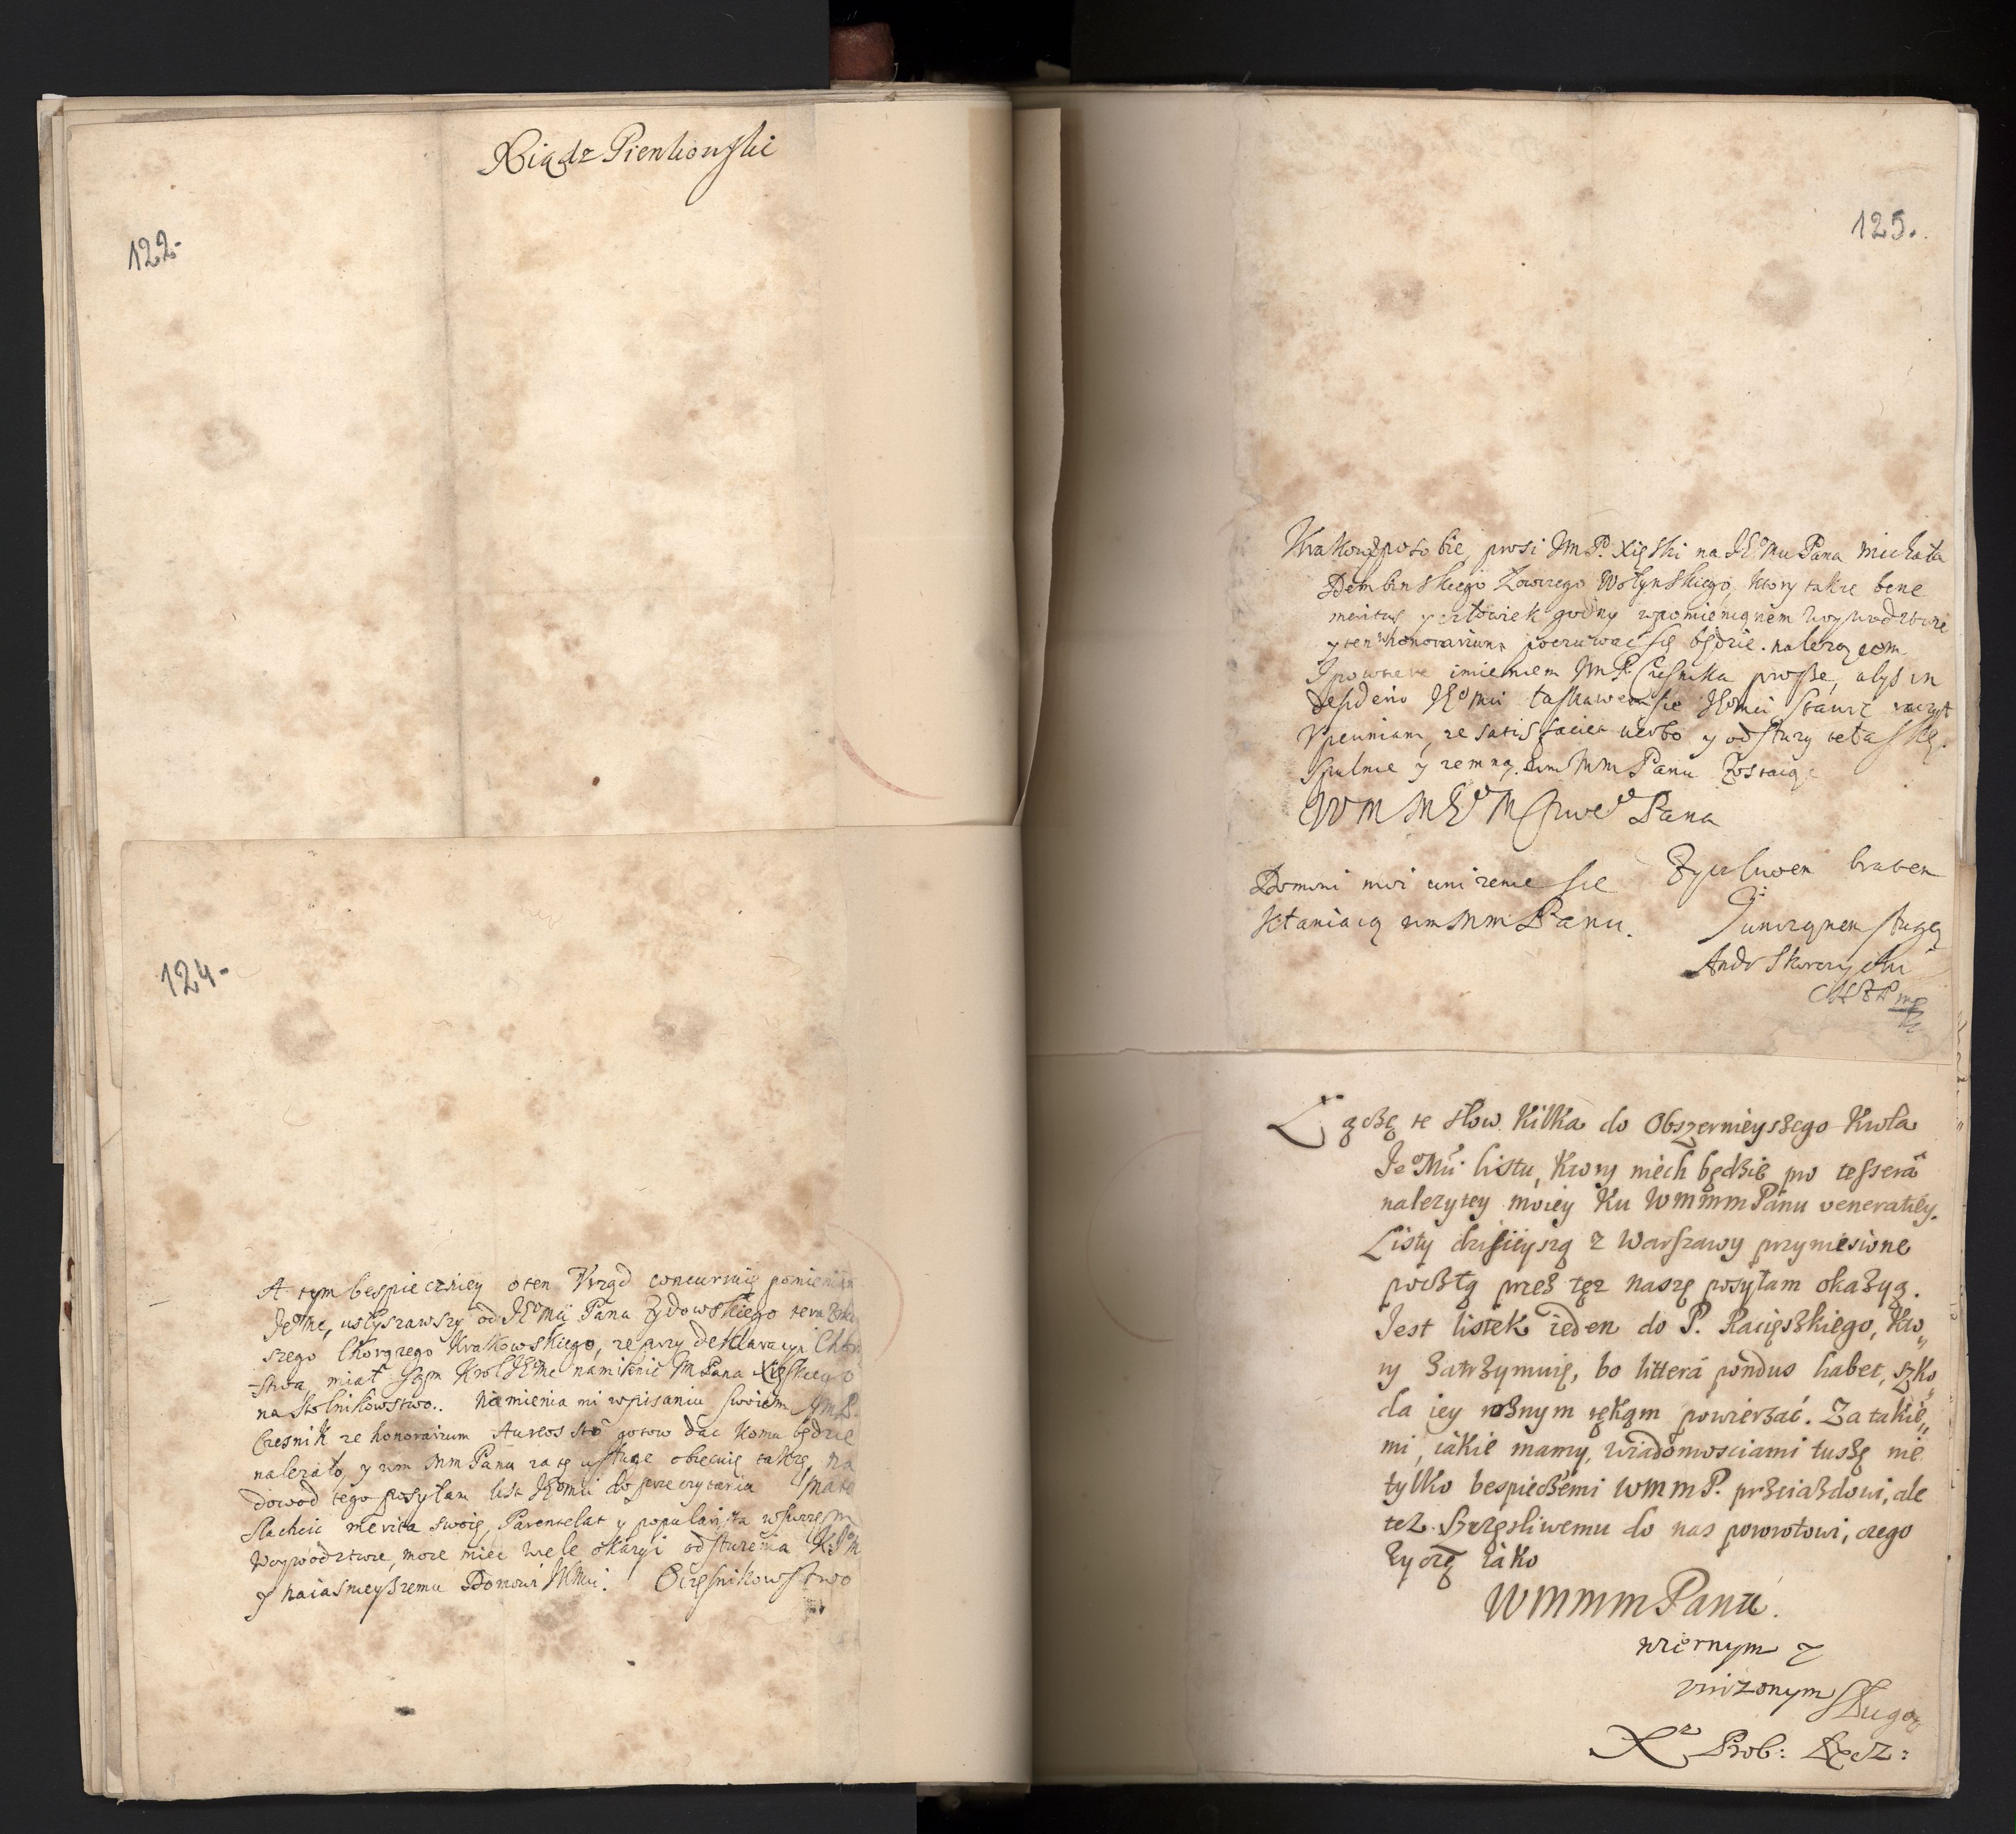 Xiądz Pienkowski
122.
124.
A tym bespieczniey o ten Vrząd concurruię
Jeome, usłyszawszy od JEomsci Pana Zydowskiego
szego Chorązego Krakowskiego, ze przy deklaracyi
stwa, miał sam Krol JEme namienić JmPana Xięskiego
na Stolnikowstwo. Namienia mi w pisaniu swoiem JmP.
Czesnik ze honorarium Aureos sto gotow dac komu będzie
nalezało, y wm mm Panu za tę usługe obiecuię takze, na
dowod tego posyłam list JEomsci do przeczytania
Slachcic merita swoie, Parentelas y popularita w
Woywodztwie, moze miec wiele okazyi odsłuzenia
y naiasnieyszemu Domowi JKMsci. O Czesnikowstwo
125.
Krakowskie prosi JmP. Xięski na JEomsci Pana Michała
Dembinskiego Łowczego Wołynskiego, ktory takze bene
meritus y człowiek godny w pomienionem Woywodztwie
y ten w honorarium poczuwać się będzie nalezącem
imieniem JmP. Czesnika prosze, abys in
desiderio JEomsci łaskawem się JEomsci stawic raczył
Vpewniam, ze satisfaciet verbo y odsłuzy tę łaskę.
Spulnie y zemną wm mm Panu Zostaiąc
WM MEo M Pana
Domowi moi unizenie się
kłaniaią wm mm Panu.
Zyczliwem bratem
y unizonem sługą
Andr Skorczycki
Łączę te słow kilka do Obszernieyszego Krola
JeoMści listu, ktory niech będzie pro tesserâ
nalezytey moiey ku WmmmPanu veneratiey.
Listy dzisieyszą z Warszawy przyniesione
pocztą przez tęz naszę posyłam okazyą.
Jest listek ieden do P. Racięskiego, kto„
ry zatrzymuię, bo littera pondus habet, szko„
da iey roznym rękąm powierzać. Za takie„
mi, iakie mamy, wiadomosciami tuszę nie
tylko bespieczemi WmmP. prziazdowi, ale
tez Szczęsliwemu do nas powrotowi, czego
zyczę iako
WmmmPanu.
wiernym y
unizonym Sługą
Xz Prob: